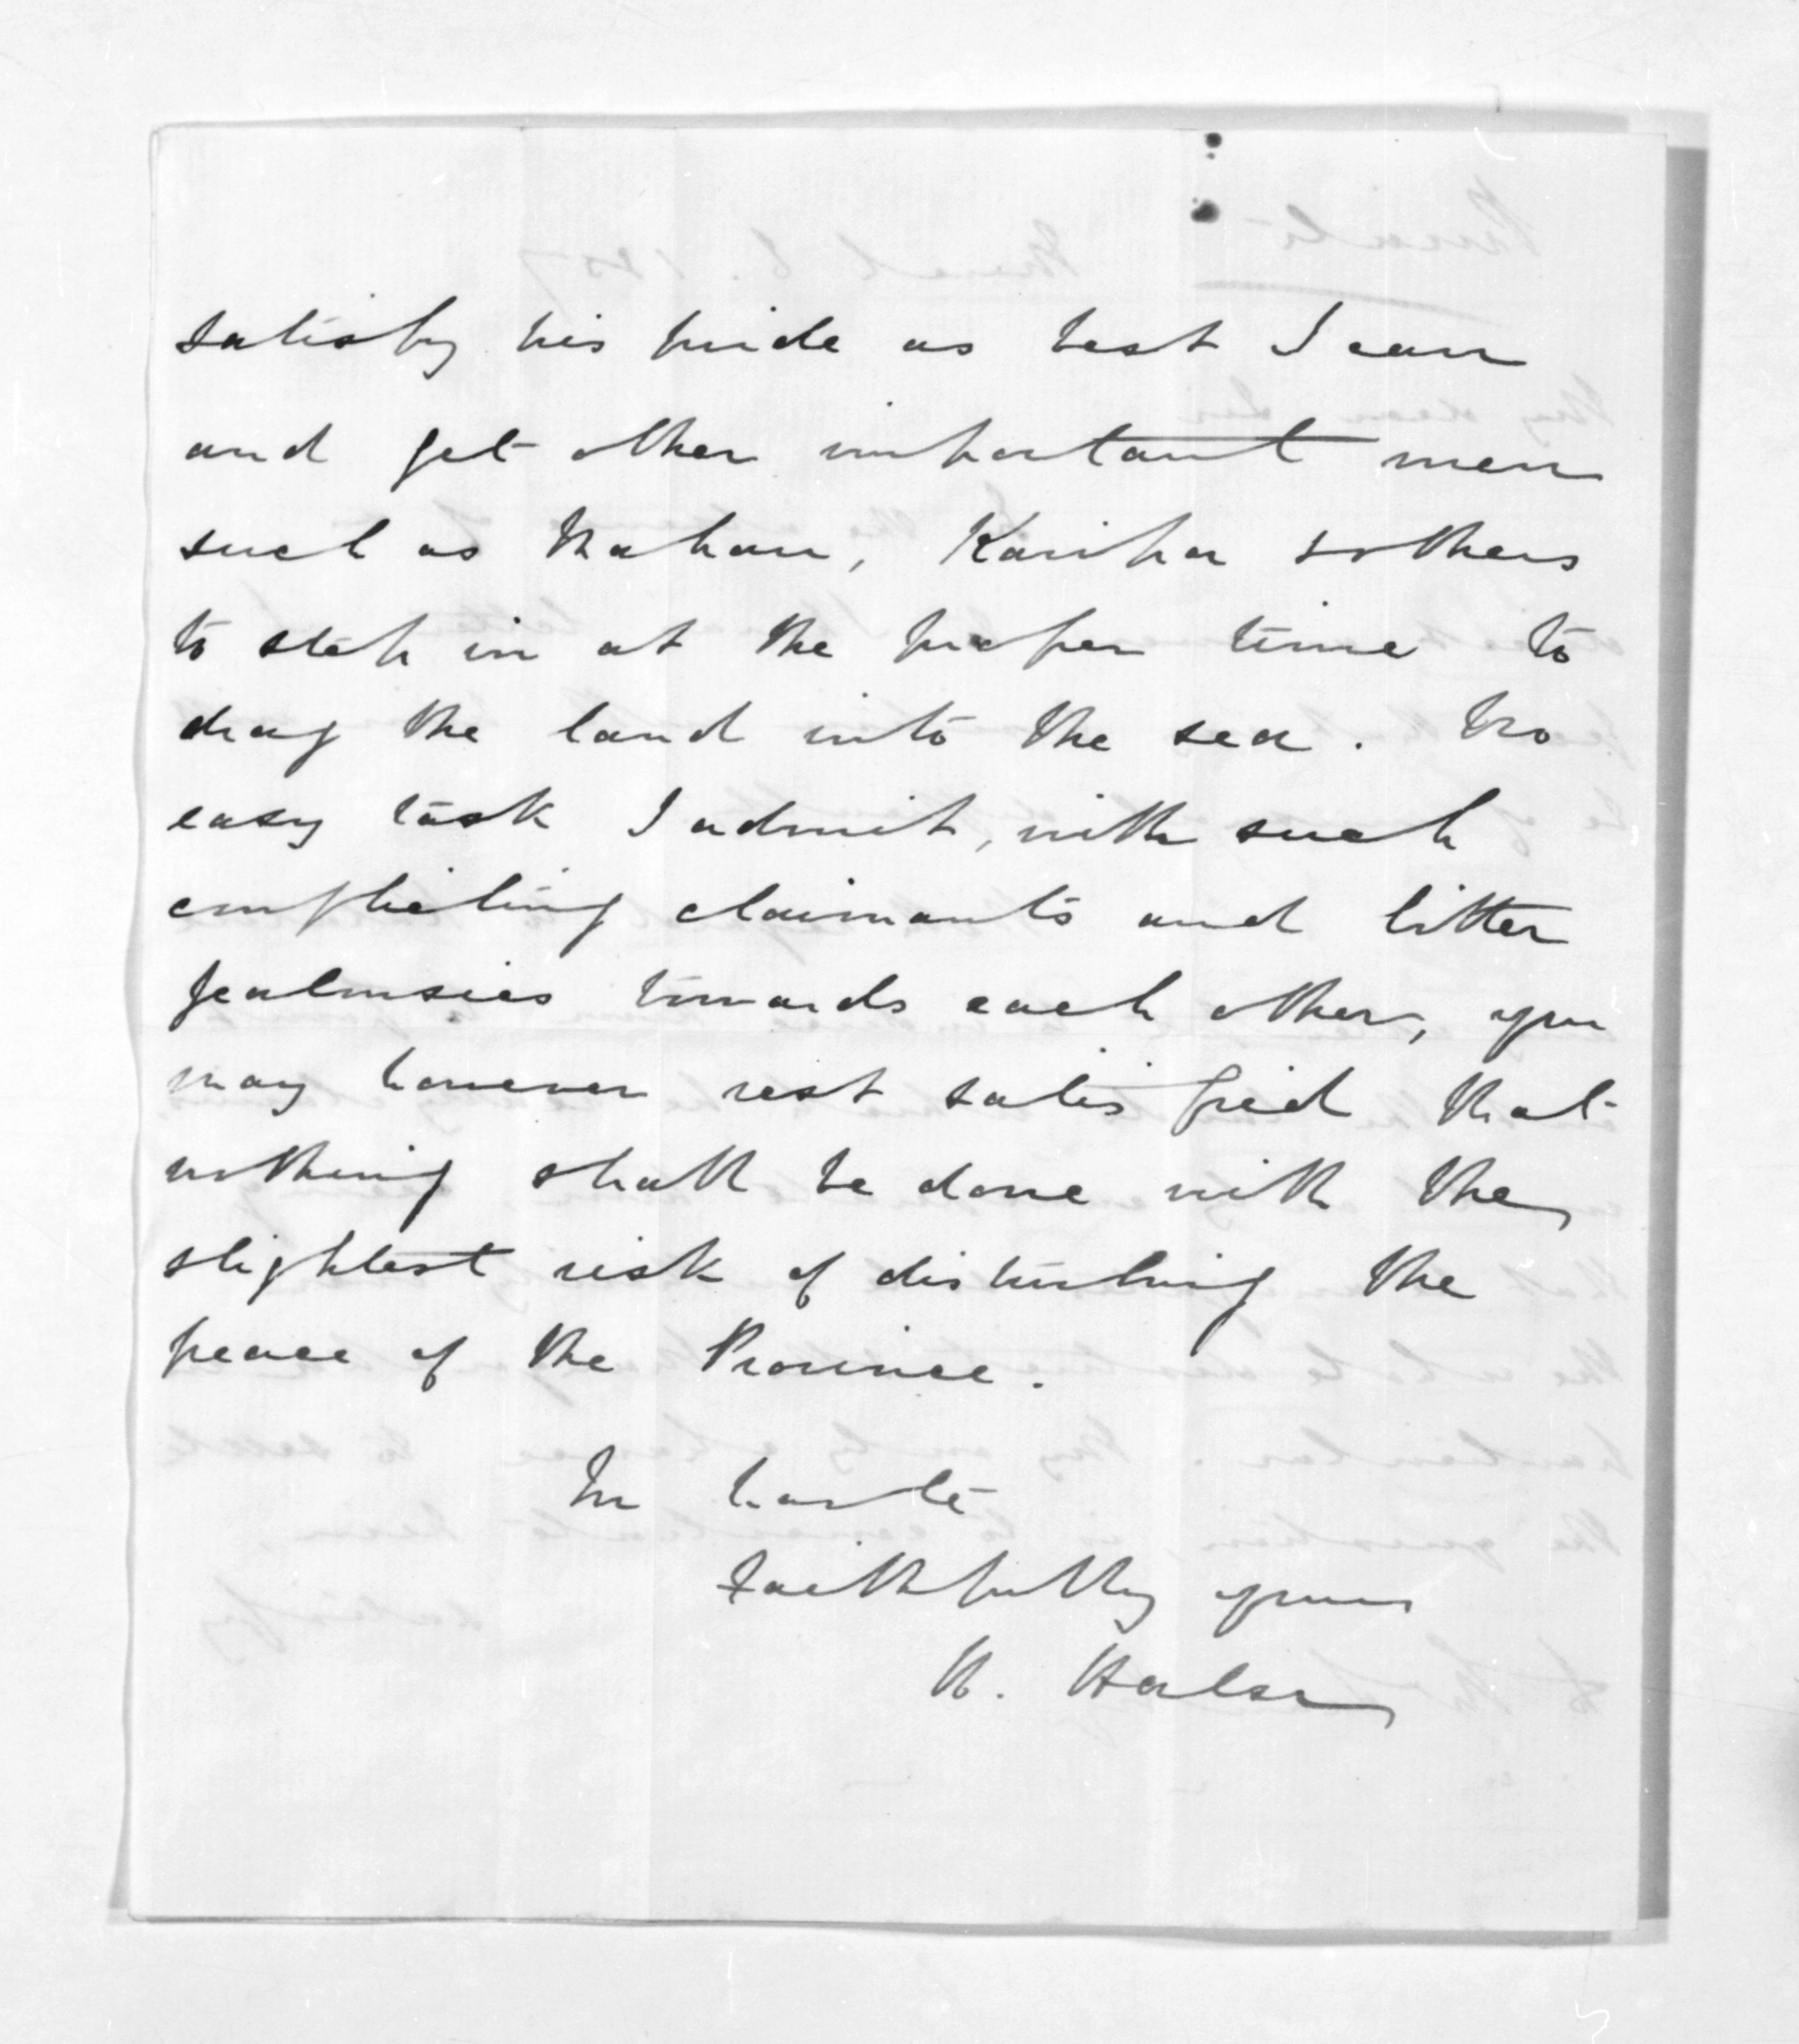 satisfy his pride as best I can
and get other important men
such as Mahau, Karipa & others
to step in at the proper time to
drag the land into the sea. No
easy task I admit, with such
conflicting claimants and bitter
jealousies towards each other, you
may however rest satisfied that
nothing shall be done with the
slightest risk of disturbing the
peace of the Province.
In haste
Faithfully yours
H. Halse